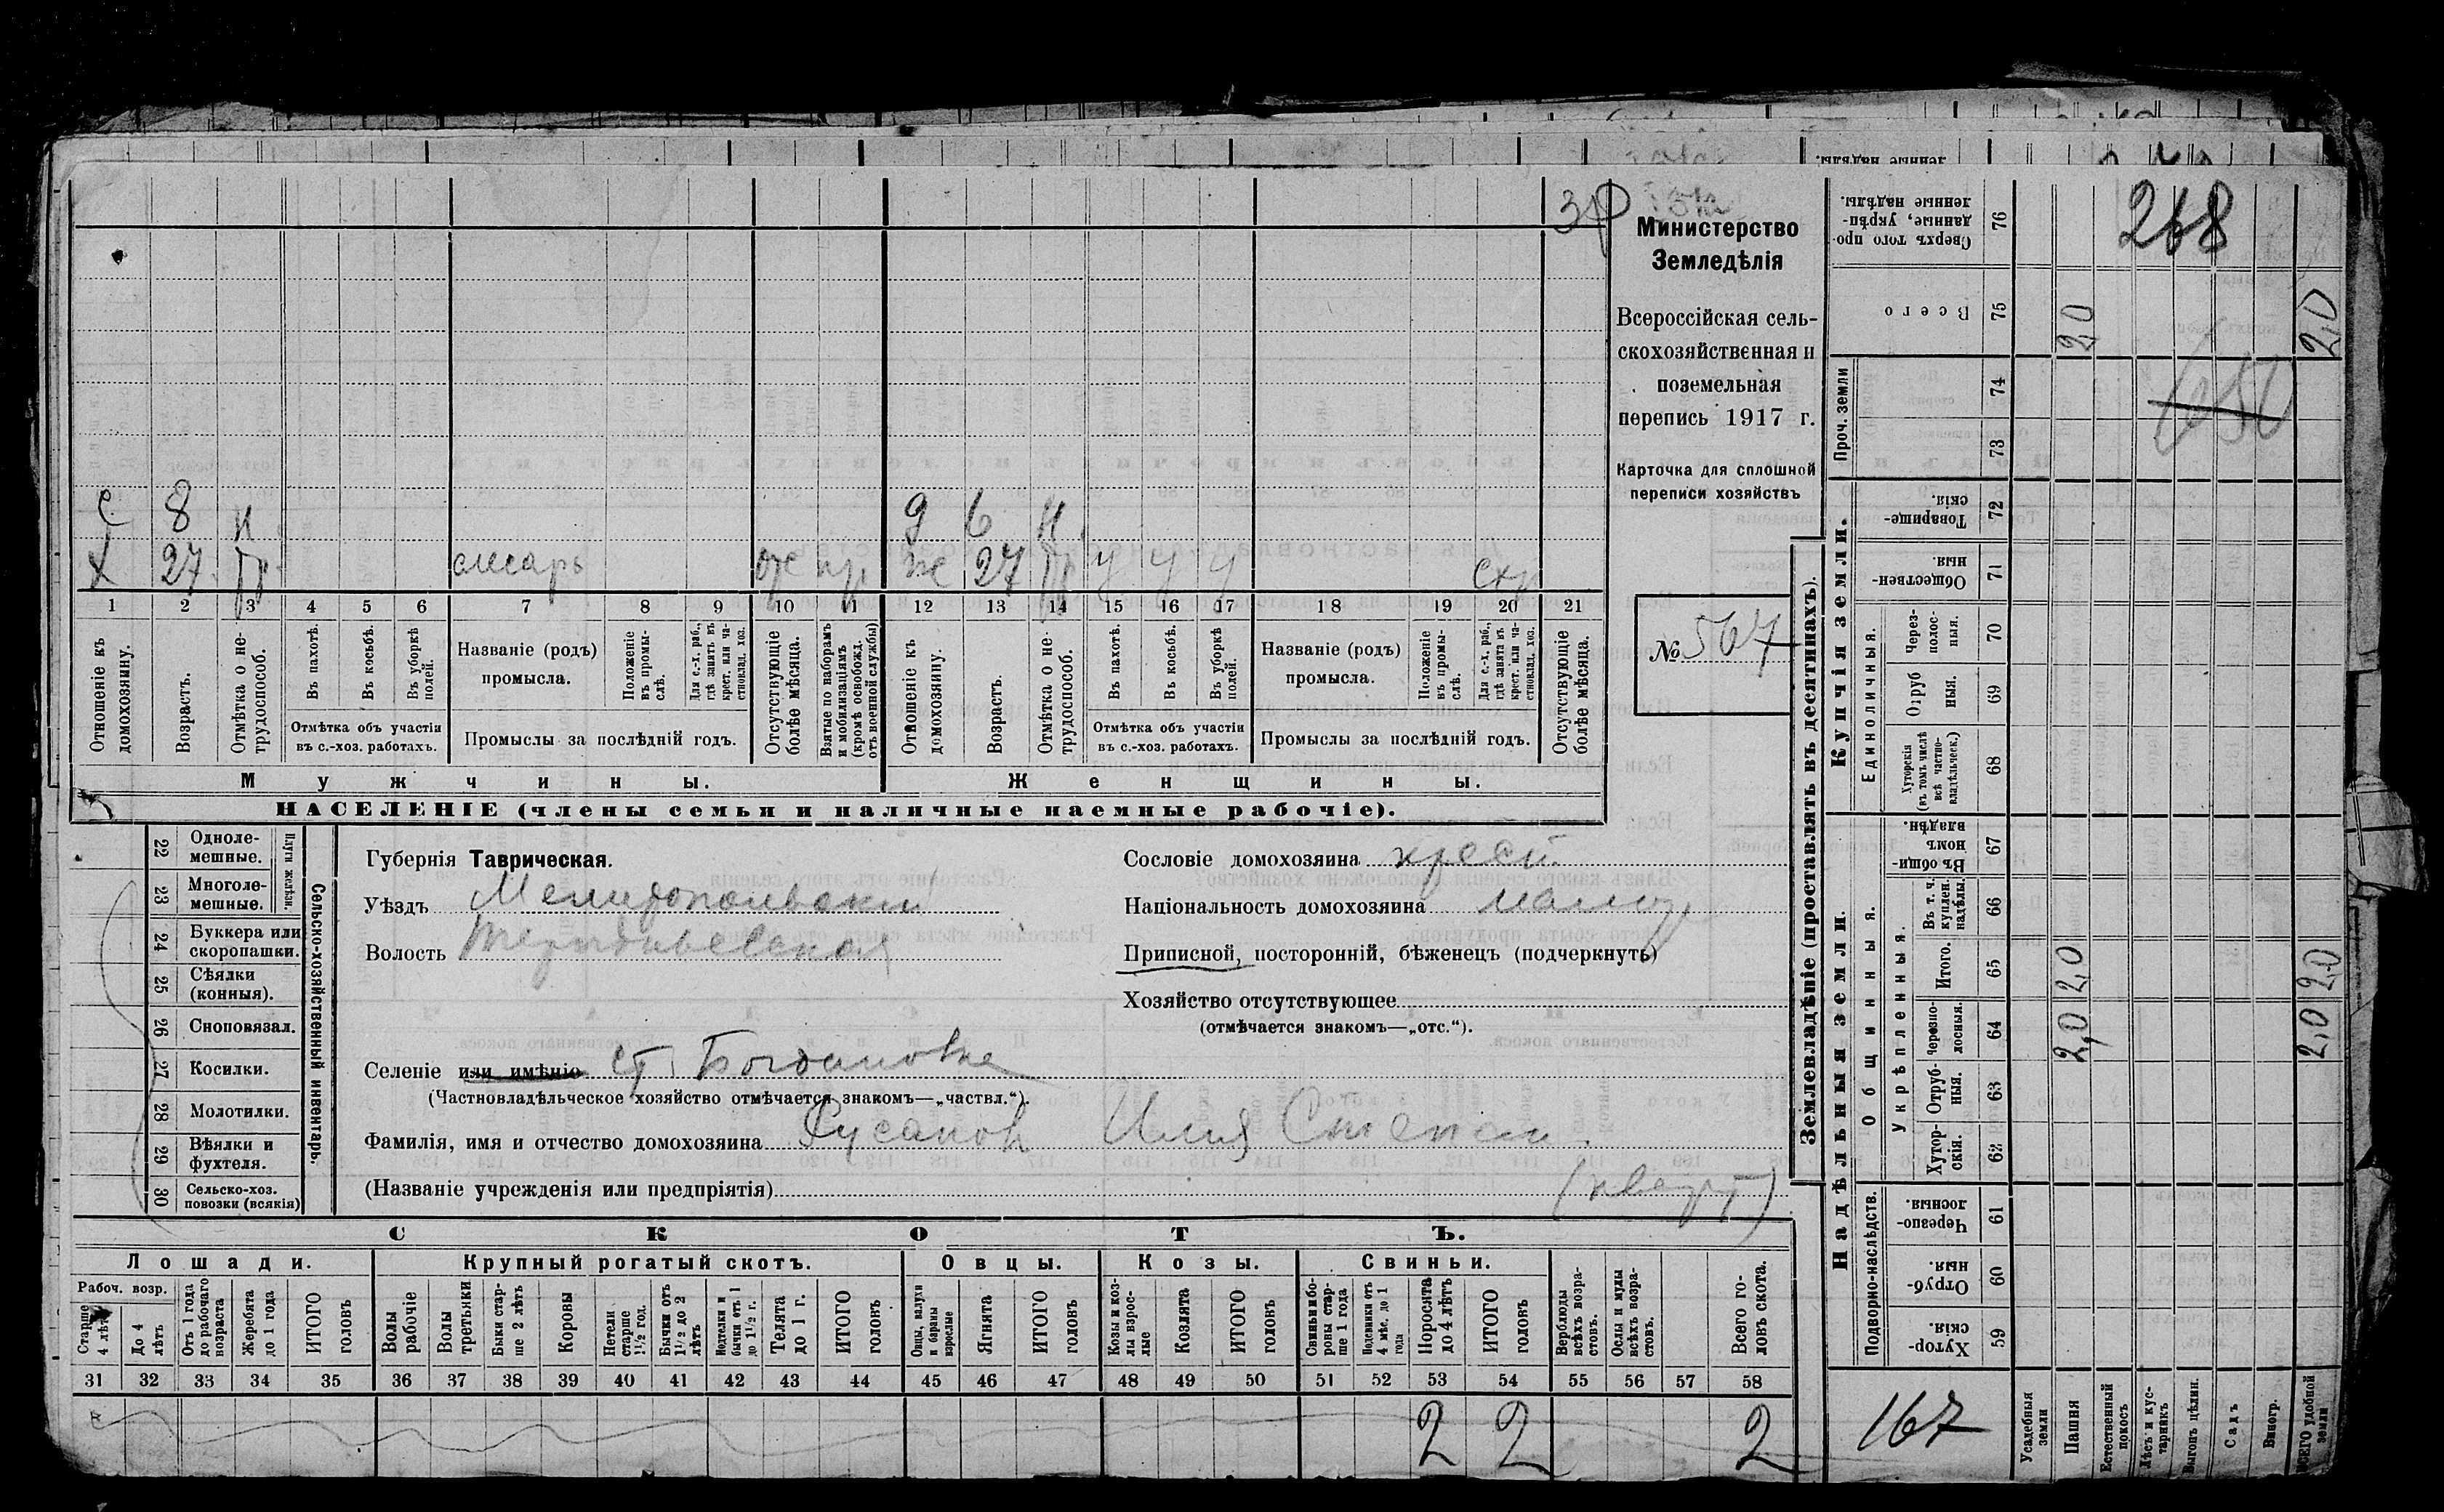 Министерство
Земледѣлія
Всероссійская сель-
скохозяйственная и
поземельная
перепись 1917 г.
Карточка для сплошной
переписи хозяйствъ
№ 567
268
с 8 н 9 6 н
х 27 слесарь ж 27 у у у
1 2 3 4 5 6 7 8 9 10 11 12 13 14 15 16 17 18 19 20 21
Отношеніе къ домохозяину.
Возрастъ.
Отмѣтка о не-трудоспособ.
Въ пахотѣ.
Въ косьбѣ.
Въ уборкѣ полей.
Отмѣтка объ участіи въ с.-хоз. работахъ.
Названіе (родъ) промысла.
Положеніе въ промы-слѣ.
Для с.-х. раб., гдѣ занятъ въ крест. или ча-стновлад. хоз.
Промыслы за послѣдній годъ.
Отсутствующіе болѣе мѣсяца.
Взятые по наборамъ и мобилизаціямъ (кромѣ освобожд. отъ военной службы)
Отношеніе къ домохозяину.
Возрастъ.
Отмѣтка о не-трудоспособ.
Въ пахотѣ.
Въ косьбѣ.
Въ уборкѣ полей.
Отмѣтка объ участіи въ с.-хоз. работахъ.
Названіе (родъ) промысла.
Положеніе въ промы-слѣ.
Для с.-х. раб., гдѣ занята въ крест. или ча-стновлад. хоз.
Промыслы за послѣдній годъ.
Отсутствующіе болѣе мѣсяца.
Мужчины. Женщины.
НАСЕЛЕНІЕ (члены семьи и наличные наемные рабочіе).
22 Одноле-мешные.
23 Многоле-мешные.
Плуги желѣзн.
24 Буккера или скоропашки.
25 Сѣялки (конныя).
26 Сноповязал.
27 Косилки.
28 Молотилки.
29 Вѣялки и фухтеля.
30 Сельско-хоз. повозки (всякія)
Сельско-хозяйственный инвентарь.
Губернія Таврическая.
Уѣздъ Мелитопольскій
Волость
Селеніе или имѣніе ст. Богдановка
(Частновладѣльческое хозяйство отмѣчается знакомъ—„частвл.“).
Фамилія, имя и отчество домохозяина Русанов Илия Степан.
(Названіе учрежденія или предпріятія)
Сословіе домохозяина крест.
Національность домохозяина малор.
Приписной, посторонній, бѣженецъ (подчеркнуть)
Хозяйство отсутствующее
(отмѣчается знакомъ—„отс.“).
СКОТЪ.
Лошади. Крупный рогатый скотъ. Овцы. Козы. Свиньи.
Рабоч. возр.
Старше 4 лѣтъ
До 4 лѣтъ
Отъ 1 года до рабочаго возраста
Жеребята до 1 года
ИТОГО головъ
Волы рабочіе
Волы третьяки
Быки стар-ше 2 лѣтъ
Коровы
Нетели старше 1½ год.
Бычки отъ 1½ до 2 лѣтъ
Нодтелки и бычки отъ 1 до 1½ г.
Телята до 1 г.
ИТОГО головъ
Овцы, валухи и бараны взрослые
Ягнята
ИТОГО головъ
Козы и коз-лы взрос-лые
Козлята
ИТОГО головъ
Свиньи и бо-ровы стар-ше 1 года
Подсвинки отъ 4 мѣс. до 1 года
Поросята до 4 лѣтъ
ИТОГО головъ
Верблюды всѣхъ возра-стовъ.
Ослы и мулы всѣхъ возра-стовъ.
Всего го-ловъ скота.
31 32 33 34 35 36 37 38 39 40 41 42 43 44 45 46 47 48 49 50 51 52 53 54 55 56 57 58
2 2 2
Землевладѣніе (проставлять въ десятинахъ).
Купчія земли.
Надѣльныя земли.
76 Сверхъ того про-данные, укрѣп-ленные надѣлы.
75 Всего 20 2,0
Проч. земли
74
73
72 Товарище-скія.
71 Обществен-ныя.
Единоличныя.
70 Через-полос-ныя.
69 Отруб ныя.
68 Хуторскія (въ томъ числѣ всѣ частно-владѣльческ.)
Общинныя.
67 Въ общин-номъ владѣн.
Укрѣпленныя.
66 Въ т. ч. куплен. надѣлы.
65 Итого. 2,0 2,0
64 Черезпо-лосныя. 2,0 2,0
63 Отруб-ныя.
62 Хутор-скія.
Подворно-наслѣдств.
61 Черезпо-лосныя
60 Отруб-ныя.
59 Хутор-скія.
167
Усадебныя земли
Пашня
Естественный покосъ
Лѣсъ и кус-тарникъ
Выгонъ цѣлин.
Садъ
Виногр.
ВСЕГО удобной земли